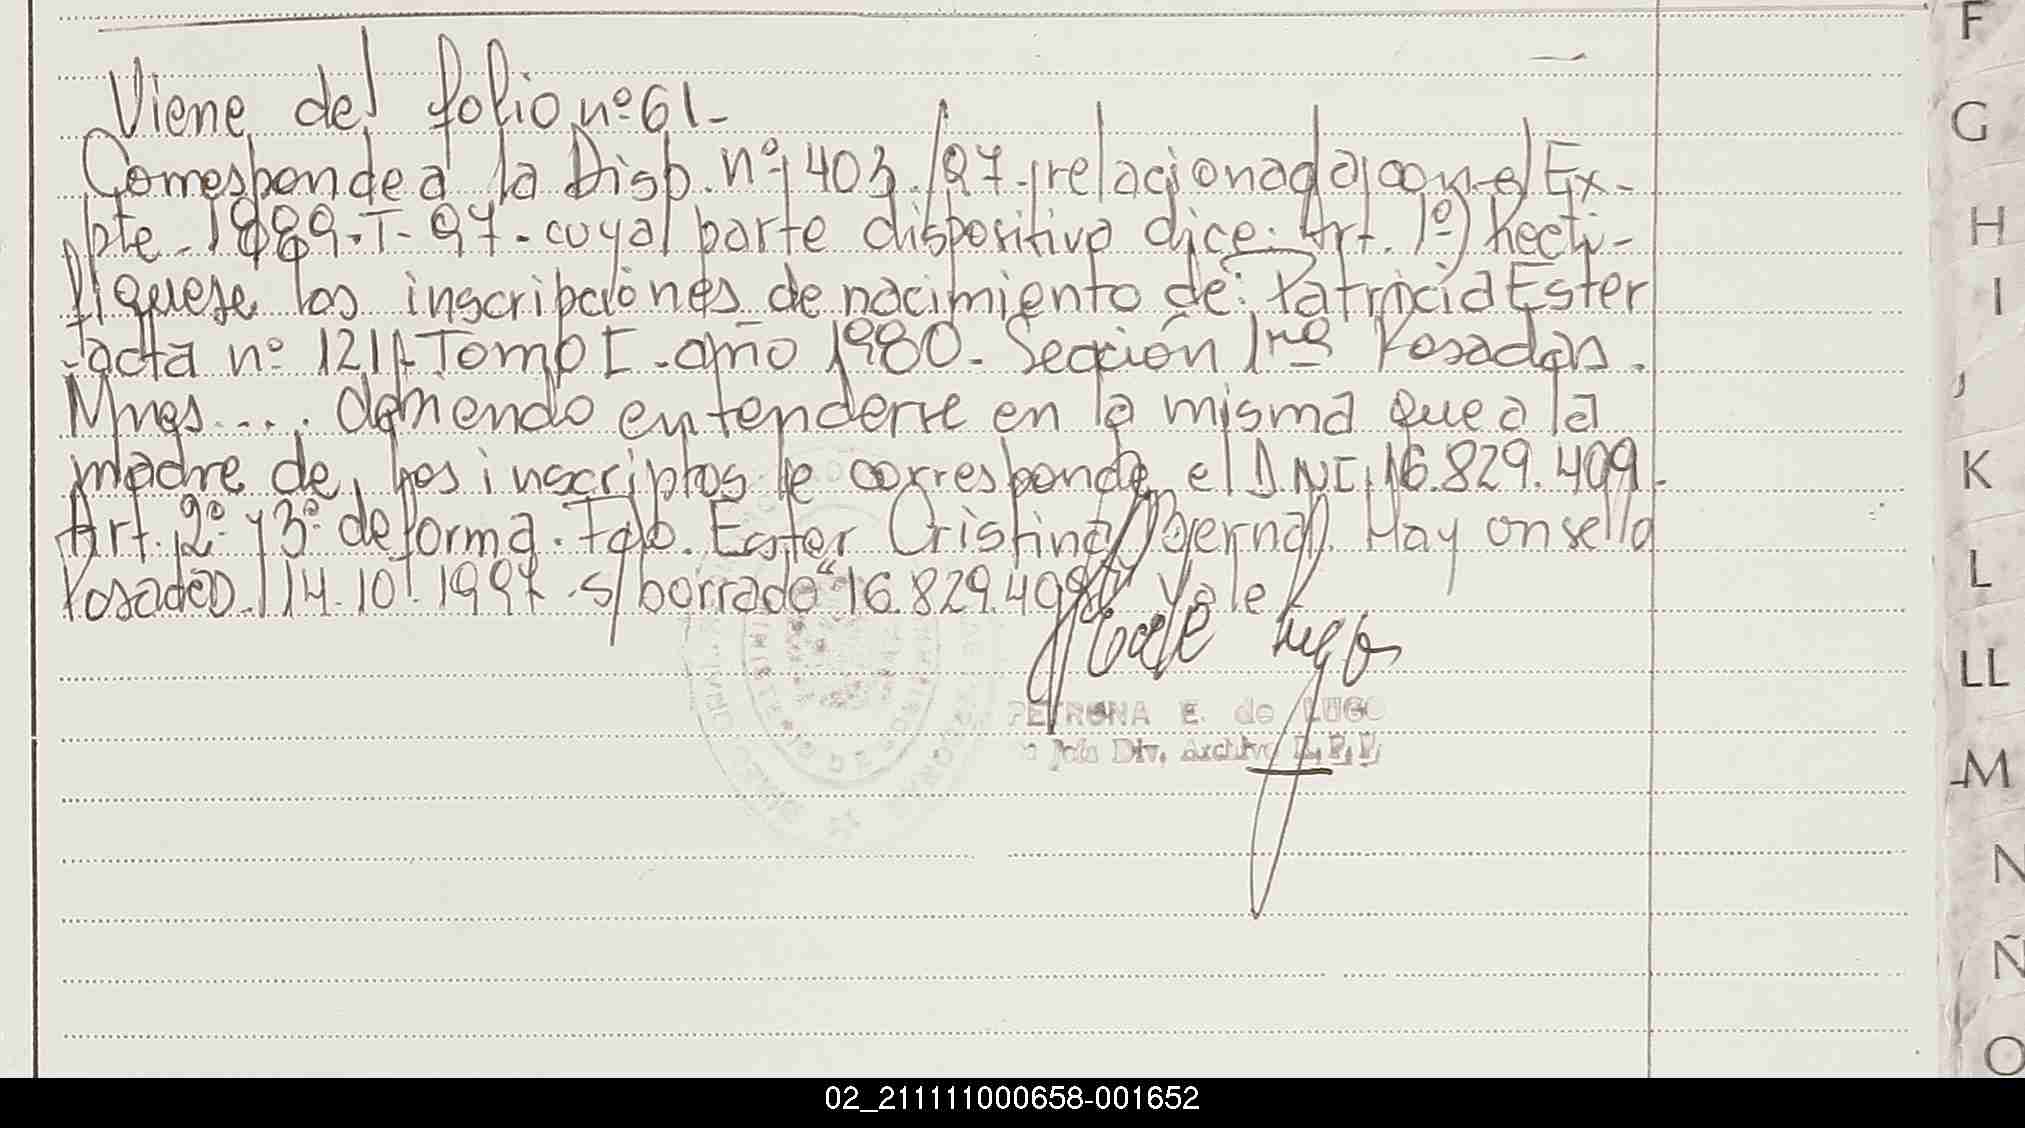 Viene del folio nº 61-
Corresponde a la Disp. nº 403/97 relacionada con el Ex-
pte. 1889-T-97- cuya parte dispositiva dice: Art. 1º) Recti-
fíquese las inscripciones de nacimiento de: Patricia Ester
acta nº 1211 Tomo I - año 1980- Sección 1ra Posadas.
Mnes.... debiendo entenderse en la misma que a la
madre de los inscriptos le corresponde el DNI 16.829.409.
Art. 2º y 3º de forma. Fdo. Ester Cristina Bernal. Hay un sello
Posadas 14.10.1997 s/borrado "16.829.409" Vale
PETRONA E. de LUGO
Jefa Div. Archivo R.P.P.
F
G
H
I
J
K
L
LL
M
N
Ñ
O
02_211111000658-001652